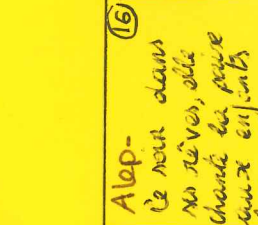 16
Alep-
Ce soir dans
ses rêves, elle
chante la paix
aux enfants